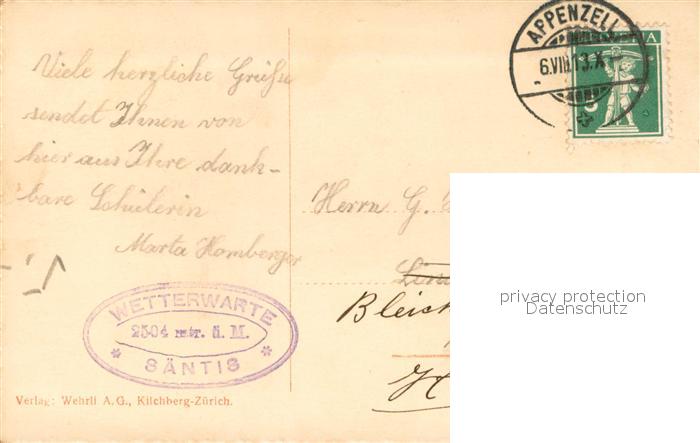 Viele herzliche Grüße
sendet Ihnen von
hier aus Ihre dank-
bare Schülerin
Marta Homberger
WETTERWARTE
2504 mtr. ü. M.
SÄNTIS
Verlag: Wehrli A.G., Kilchberg-Zürich.
APPENZELL
6.VIII.13.X
HELVETIA
5
Herrn G.
Bleich
privacy protection
Datenschutz